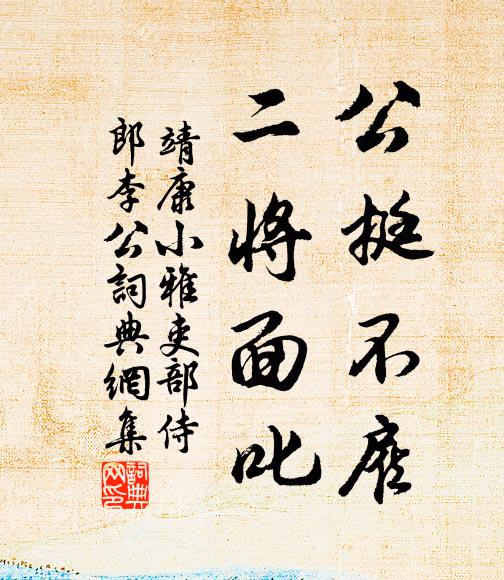 公挺不庭
二將面叱
靖康小雅吏部侍
郎李公詞典網集
詞典網印